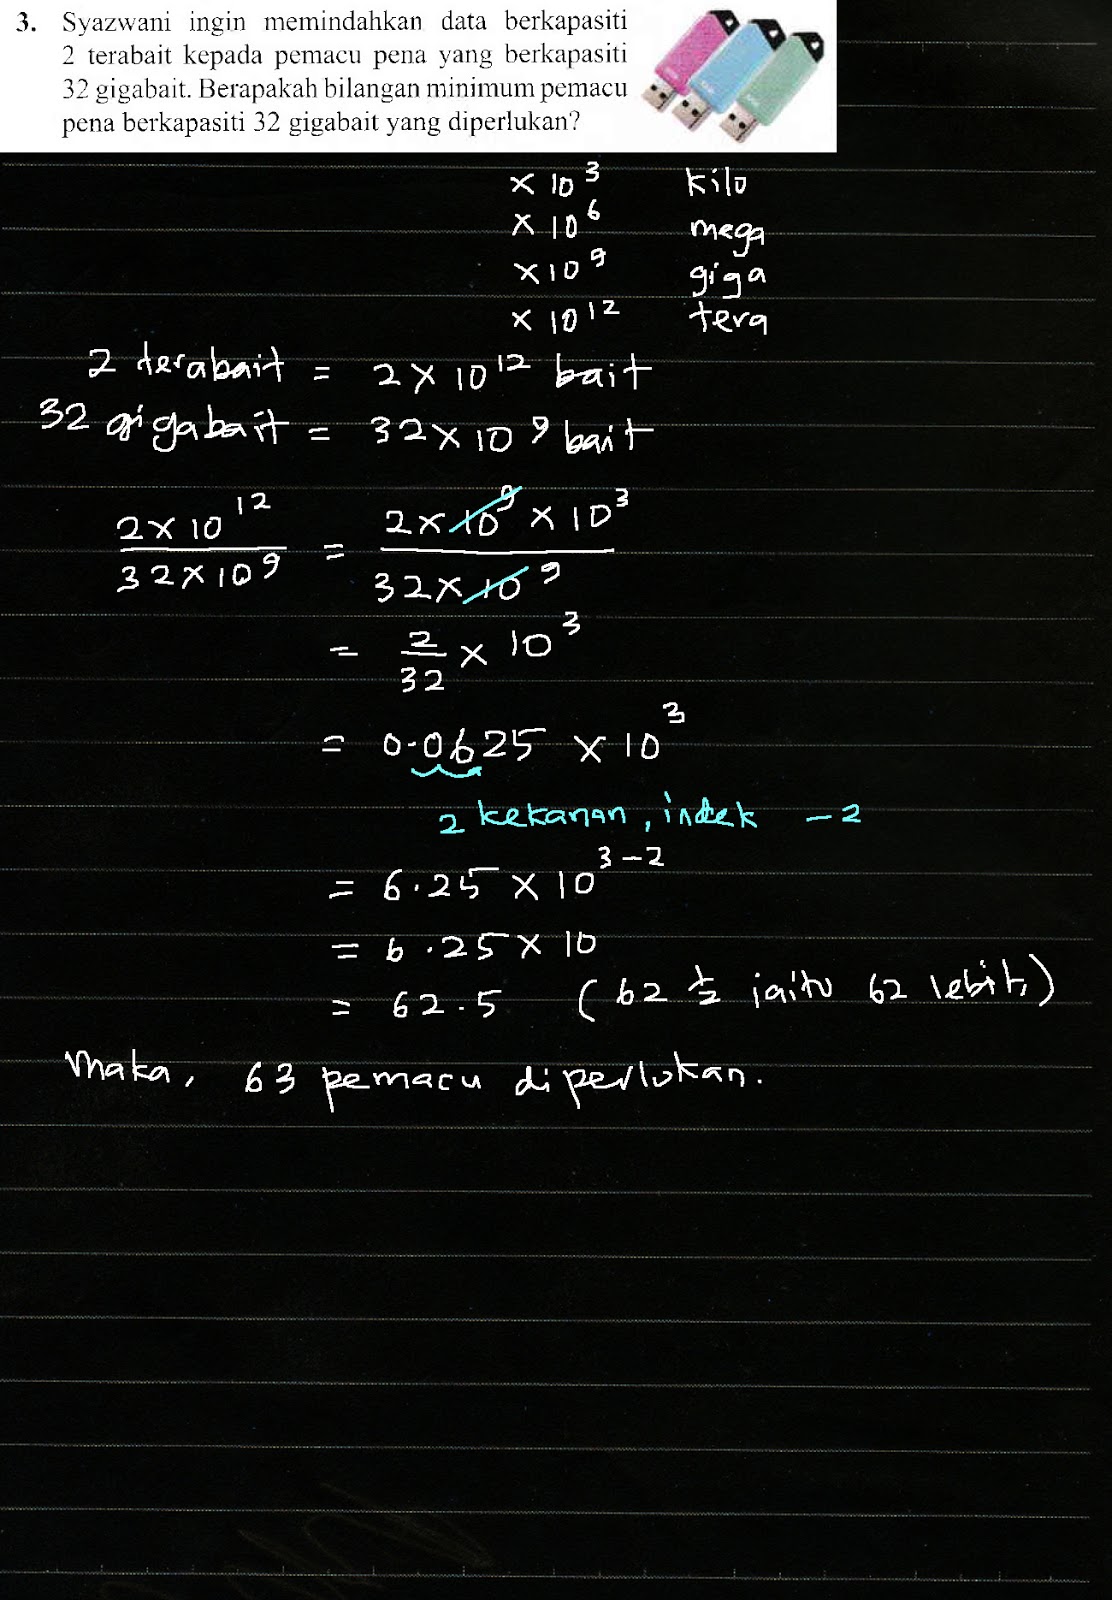 3. Syazwani ingin memindahkan data berkapasiti
2 terabait kepada pemacu pena yang berkapasiti
32 gigabait. Berapakah bilangan minimum pemacu
pena berkapasiti 32 gigabait yang diperlukan?
× 10³ kilo
× 10⁶ mega
× 10⁹ giga
× 10¹² tera
2 terabait = 2 × 10¹² bait
32 gigabait = 32 × 10⁹ bait
2 × 10¹² / 32 × 10⁹ = 2 × 10⁹ × 10³ / 32 × 10⁹
= 2/32 × 10³
= 0.0625 × 10³
2 kekanan, indek -2
= 6.25 × 10³⁻²
= 6.25 × 10
= 62.5 (62 ½ iaitu 62 lebih)
Maka, 63 pemacu diperlukan.